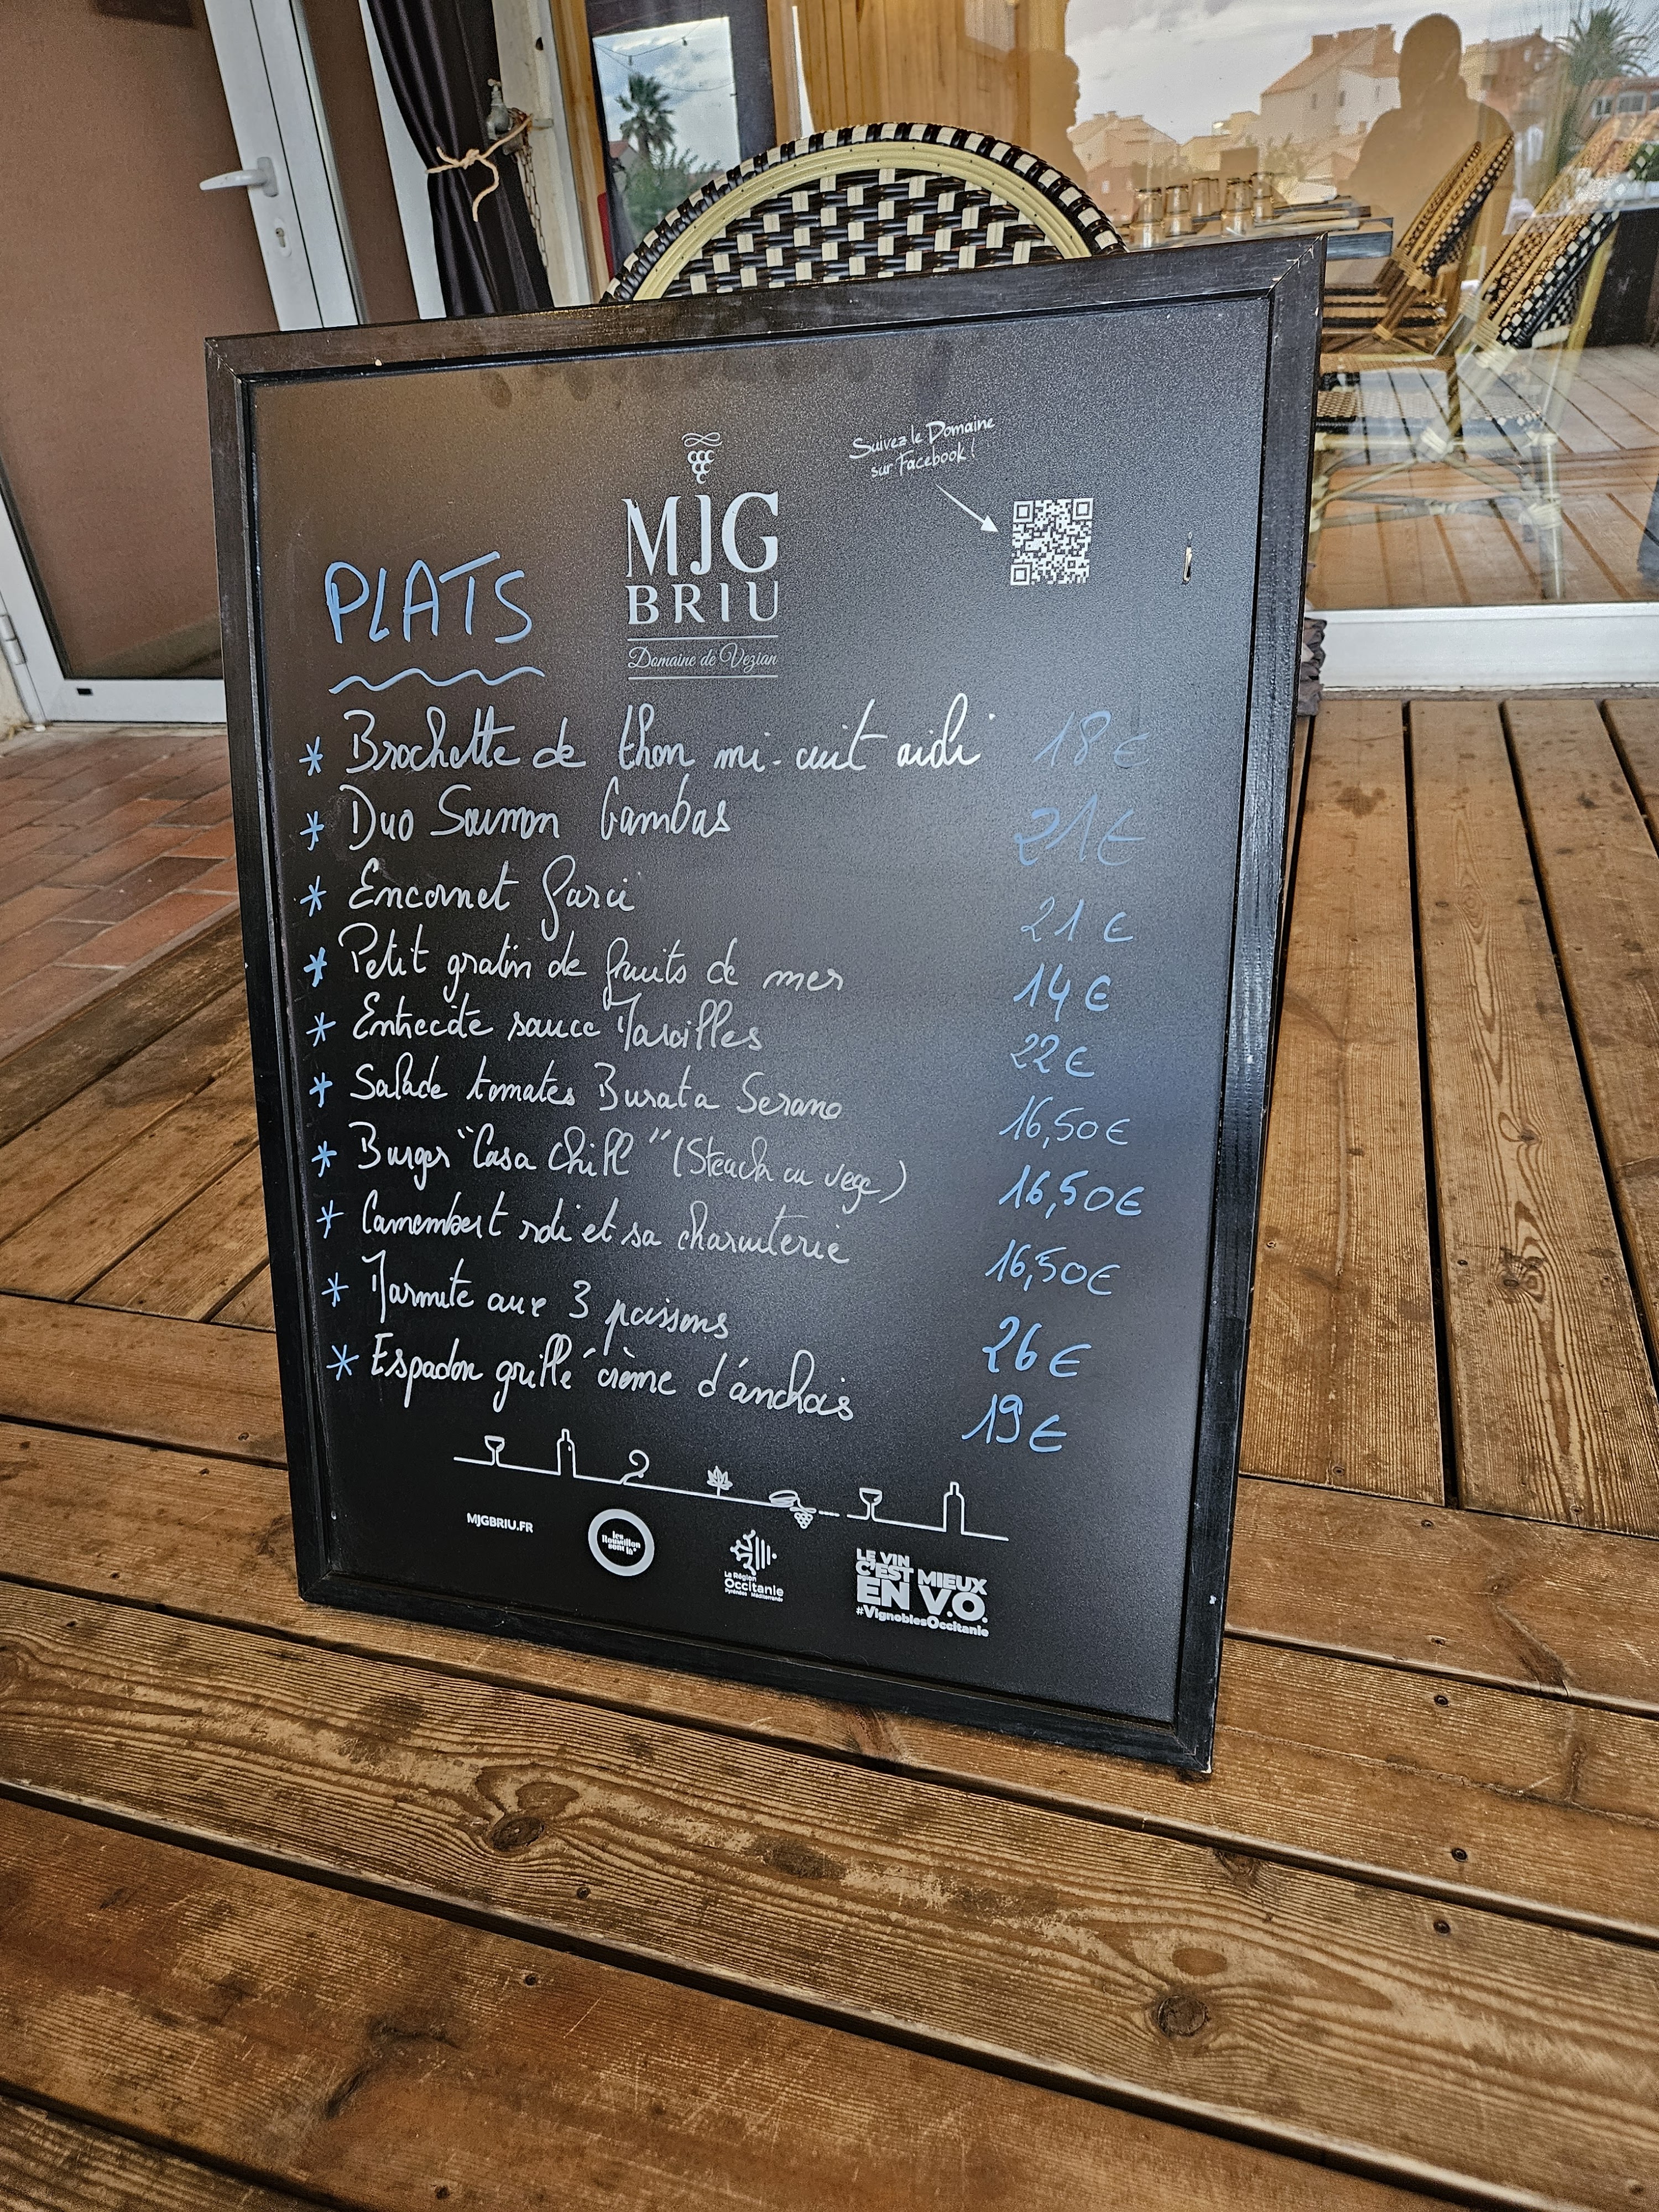 Suivez le Domaine
sur Facebook !
MJG
BRIU
Domaine de Vezian
PLATS
* Brochette de thon mi-cuit aioli 18€
* Duo Saumon Gambas 21€
* Encornet farci 21€
* Petit gratin de fruits de mer 14€
* Entrecôte sauce Maroilles 22€
* Salade tomates Burata Serano 16,50€
* Burger "Casa Chill" (Steack ou vege) 16,50€
* Camembert roti et sa charcuterie 16,50€
* Marmite aux 3 poissons 26€
* Espadon grillé crème d'anchois 19€
MJGBRIU.FR
les
Roussillon
sont là
La Région
Occitanie
Pyrénées Méditerranée
LE VIN
C'EST MIEUX
EN V.O.
#VignoblesOccitanie